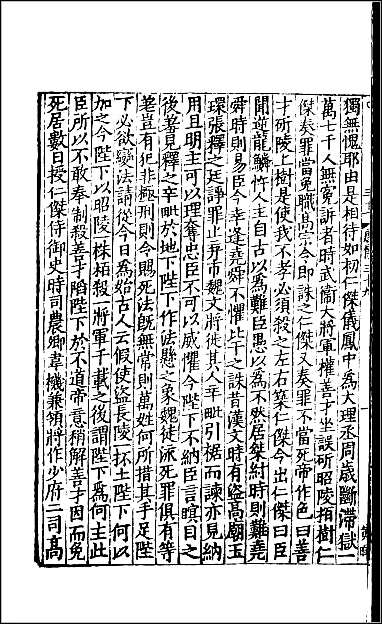 獨無愧耶由是相待如初仁傑儀鳳中為大理丞周歲斷滯獄一
萬七千人無冤訴者時武衞大將軍權善才坐誤斫昭陵栢樹仁
傑奏罪當免職髙宗令即誅之仁傑又奏罪不當死帝作色曰善
才斫陵上樹是使我不孝必須殺之左右矚仁傑令出仁傑曰臣
聞逆龍鱗忤人主自古以為難臣愚以為不然居桀紂時則難堯
舜時則易臣今幸逢堯舜不懼比干之誅昔漢文時有盗髙廟玉
環張釋之廷諍罪止弃市魏文將徙其人辛毗引裾而諫亦見納
用且明主可以理奪忠臣不可以威懼今陛下不納臣言瞑目之
後羞見釋之辛毗於地下陛下作法懸之象魏徒流死罪俱有等
差豈有犯非極刑則令賜死法既無常則萬姓何所措其手足陛
下必欲變法請從今日為始古人云假使盗長陵一抔土陛下何以
加之今陛下以昭陵一株栢殺一將軍千載之後謂陛下為何主此
臣所以不敢奉制殺善才陷陛下於不道帝意稍解善才因而免
死居數日授仁傑侍御史時司農卿韋機兼領將作少府二司髙